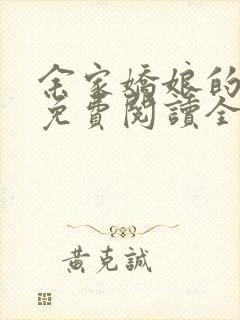 余家嬌娘的
免費閱讀全
黃克誠